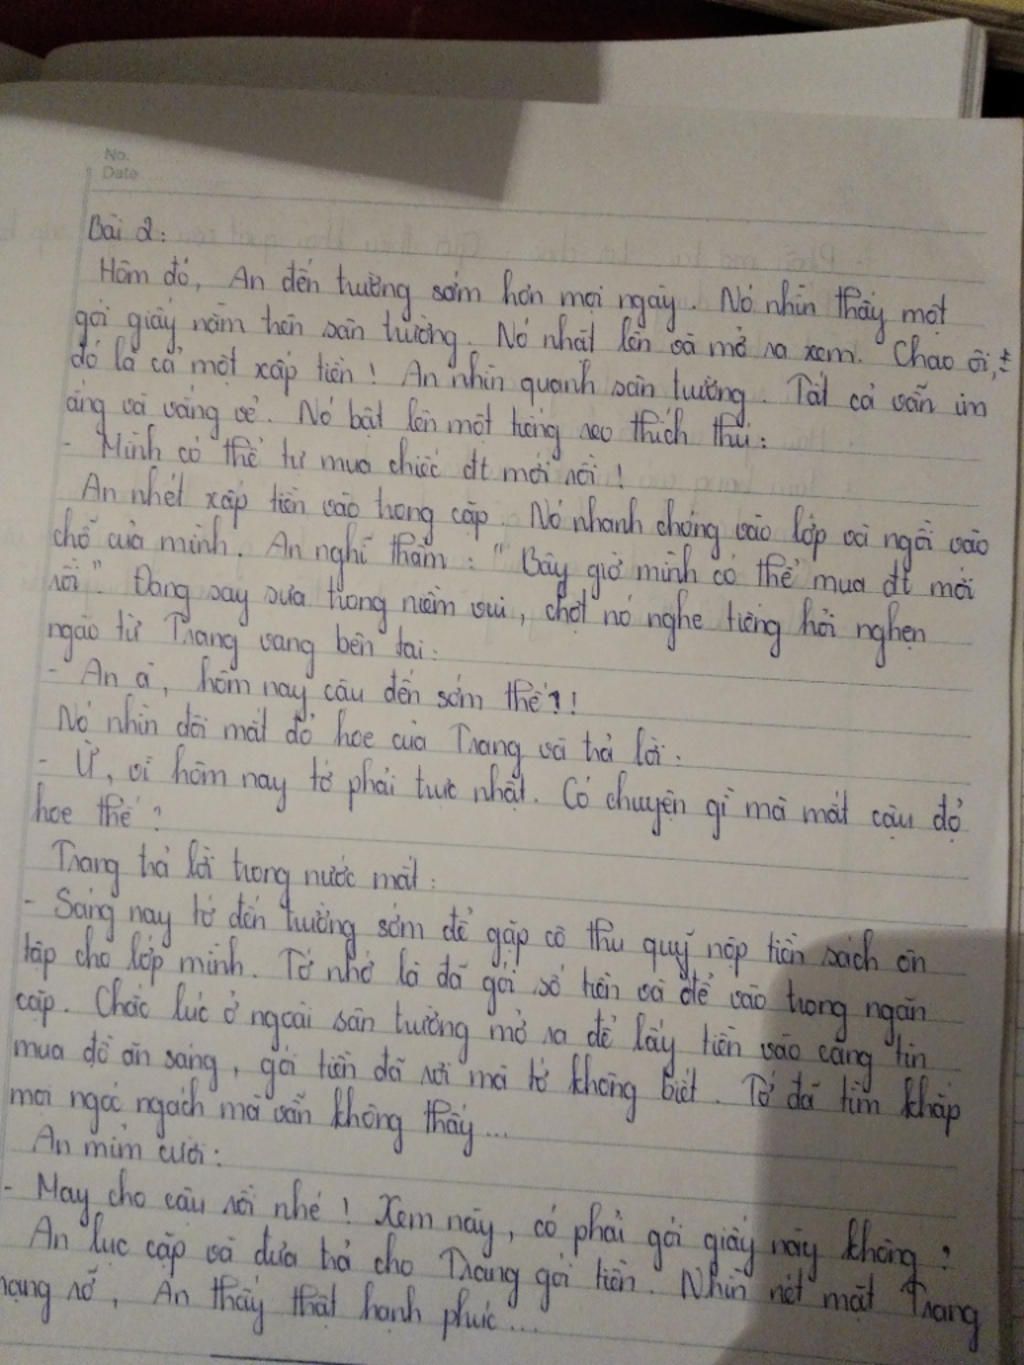 No.
Date
Bài 2:
Hôm đó, An đến trường sớm hơn mọi ngày. Nó nhìn thấy một
gói giấy nằm trên sân trường. Nó nhặt lên và mở ra xem. Chao ôi,
đó là cả một xấp tiền! An nhìn quanh sân trường. Tất cả vẫn im
ắng và vắng vẻ. Nó bật lên một tiếng reo thích thú:
- Mình có thể tự mua chiếc đt mới rồi!
An nhét xấp tiền vào trong cặp. Nó nhanh chóng vào lớp và ngồi vào
chỗ của mình. An nghĩ thầm: "Bây giờ mình có thể mua đt mới
rồi". Đang say sưa trong niềm vui, chợt nó nghe tiếng hỏi nghẹn
ngào từ Trang vang bên tai:
- An à, hôm nay cậu đến sớm thế?!
Nó nhìn đôi mắt đỏ hoe của Trang và trả lời:
- Ừ, vì hôm nay tớ phải trực nhật. Có chuyện gì mà mắt cậu đỏ
hoe thế?
Trang trả lời trong nước mắt:
- Sáng nay tớ đến trường sớm để gặp cô thủ quỹ nộp tiền sách ôn
tập cho lớp mình. Tớ nhớ là đã gói số tiền và để vào trong ngăn
cặp. Chắc lúc ở ngoài sân trường mở ra để lấy tiền vào căng tin
mua đồ ăn sáng, gói tiền đã rơi mà tớ không biết. Tớ đã tìm khắp
mọi ngóc ngách mà vẫn không thấy...
An mỉm cười:
- May cho cậu rồi nhé! Xem này, có phải gói giấy này không?
An lục cặp và đưa trả cho Trang gói tiền. Nhìn nét mặt Trang
rạng rỡ, An thấy thật hạnh phúc...